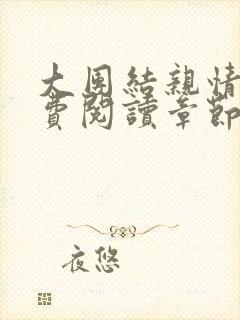 大團結親情
費閱讀章節
夜悠